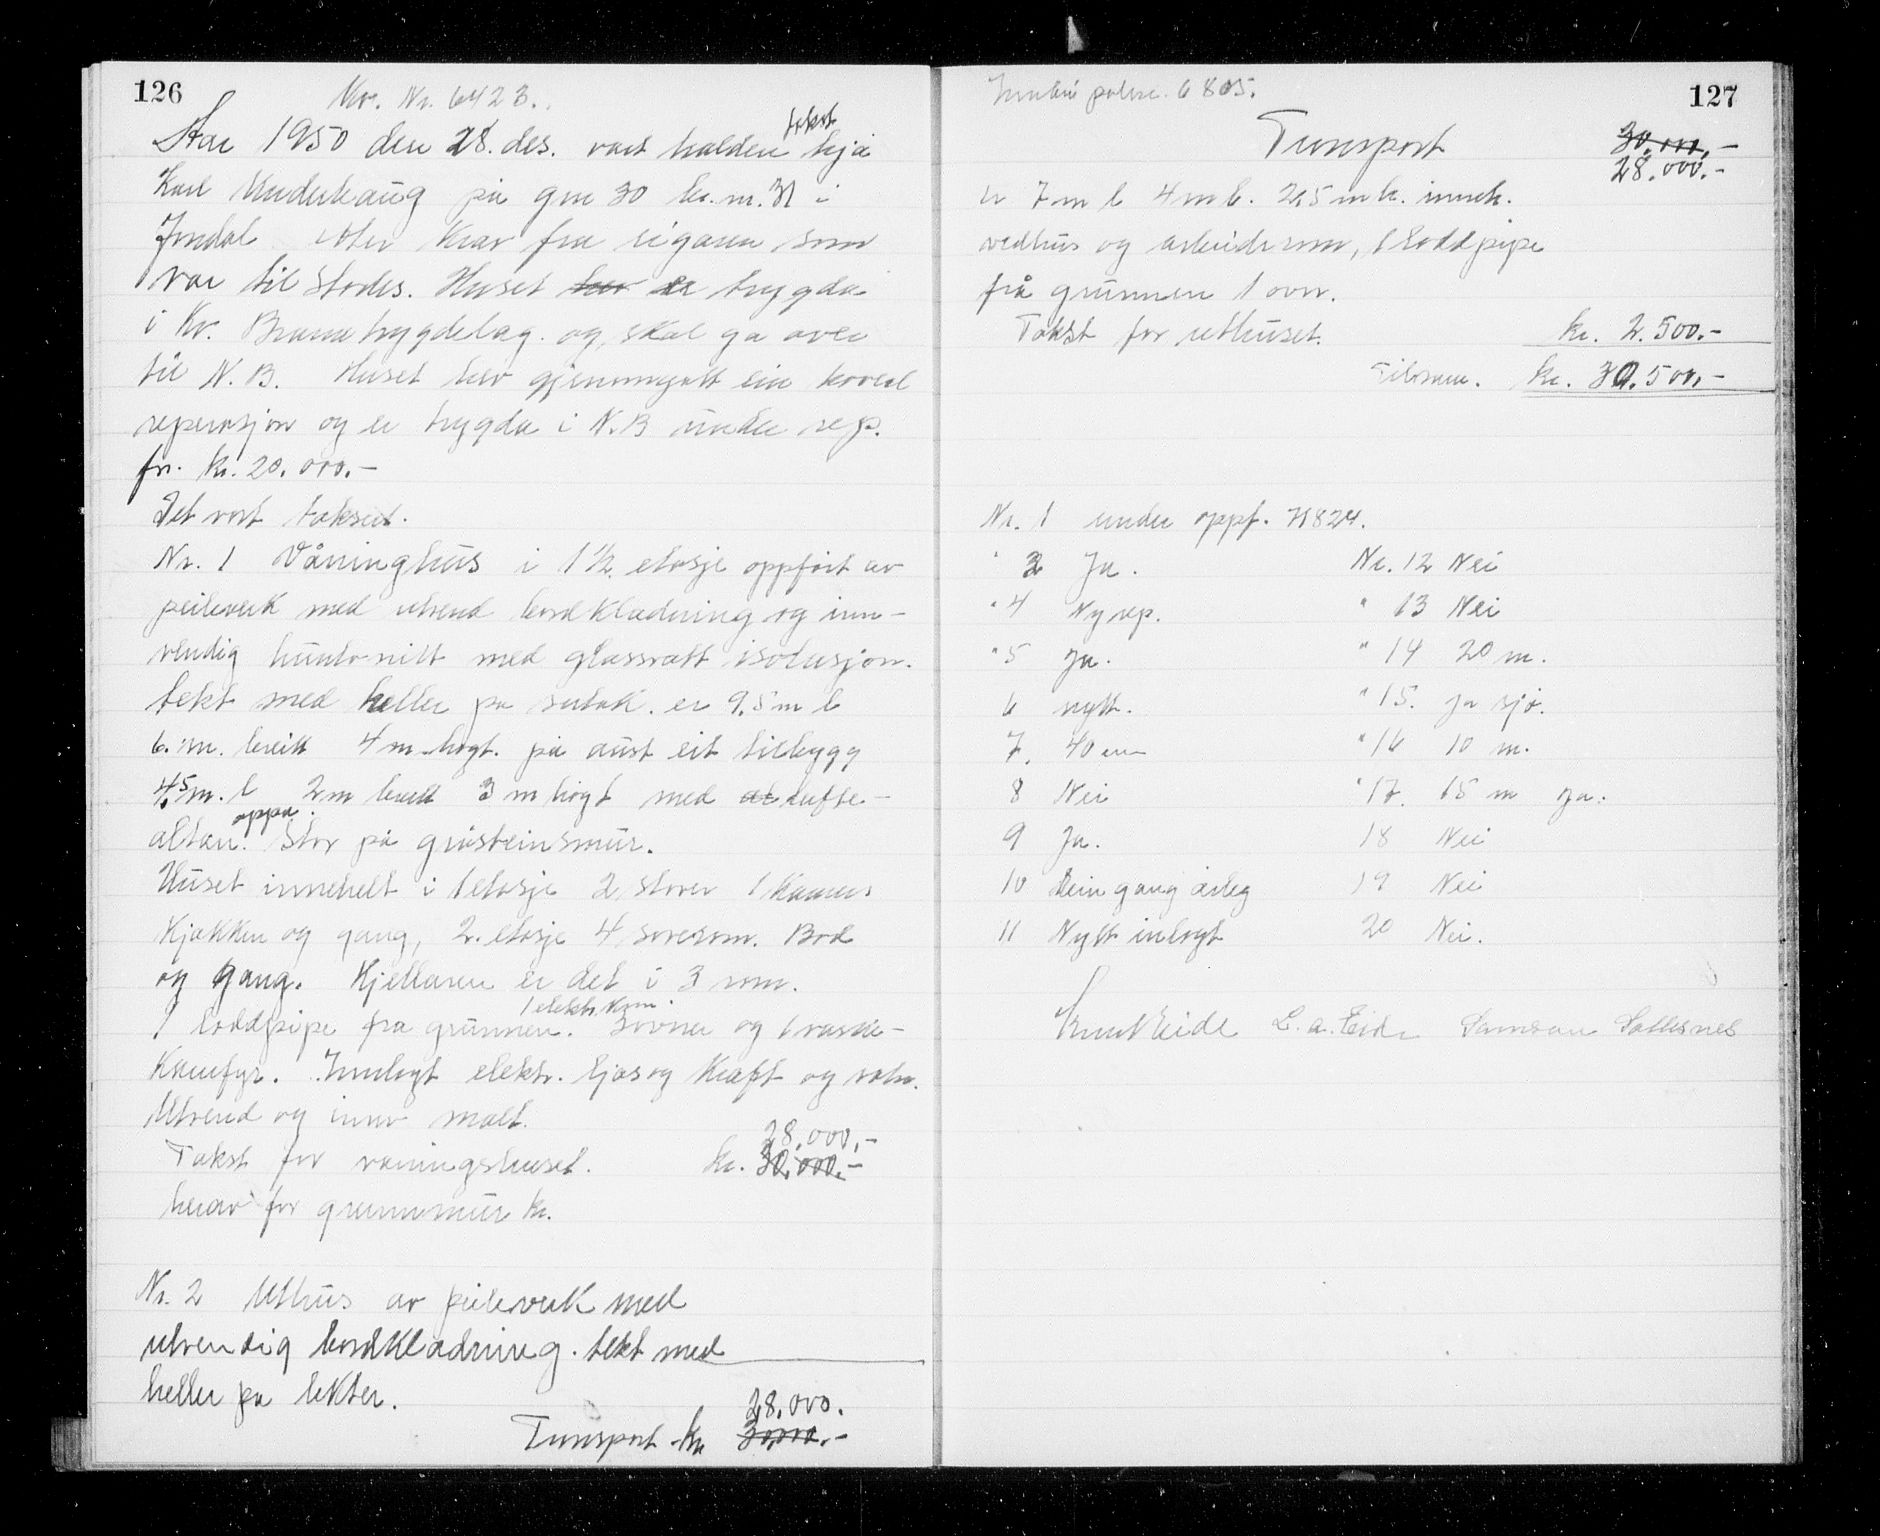 126
Kr. Nr. 6423.
Aar 1950 den 28. des. vart halden takst hjå
Karl Underhaug på gnr 30 br.nr. 31 i
Jondal etter krav fra eigaren som
var til stades. Huset hav er trygda
i Kv. Branntrygdelag og skal ga over
til N.B. Huset hev gjenomgått ein hoved
reperasjon og er trygda i N.B under rep.
for kr. 20.000.-
Det vart taksert.
Nr. 1 Våninghus i 1 1/2. etasje oppført av
peileverk med utvend bordklædning og inn-
vendig huntonitt med glassvatt isolasjon.
tekt med heller pa sutak. er 9.5 m l
6. m. breitt 4 m høgt. på aust eit tilbygg
4,5 m. l 2 m breitt 3 m høgt med at lufte-
altan oppa. Stor på gråsteinsmur.
Huset innehelt i 1 etasje 2 stover 1 kamers
Kjøkken og gang, 2. etasje 4 soverom. Bod
og gang. Kjellaren er det i 3 rom.
1 loddpipe fra grunnen. 1 elektr. kom. 3 ovner og 1 vaske-
Kamfyr. Innlagt elektr. ljos og kraft og vatn.
Utvend og innv malt.
28.000,-
Takst for våningshuset. kr. 30.000.-
herav for grunnmur kr.
Nr. 2 Uthus av peileverk med
utvendig bordkladning. tekt med
heller pa lekter.
28.000.
Transport kr 30.000.-
127
polise. 6805.
Transport 30.000,-
28.000.-
er 7 m l 4 m b. 2,5 m h. inneh.
vedhus og arbeidsrom, 1 loddpipe
frå grunnen 1 ovn.
Takst for uthuset. kr. 2.500.-
Tilsam. kr. 30.500,-
Nr. 1 under oppf. 71824.
" 2 Ja. Nr. 12 Nei
" 4 Ny rep. " 13 Nei
" 5 Ja. " 14 20 m.
6 nytt. " 15. ja sjø.
7. 40 cm " 16 10 m.
8 Nei " 17. 15 m ja.
9 Ja. 18 Nei
10 Ein gang årleg 19 Nei
11 Nytt inlagt 20 Nei.
Knut Eide L. A. Eide Samson Sollesnes